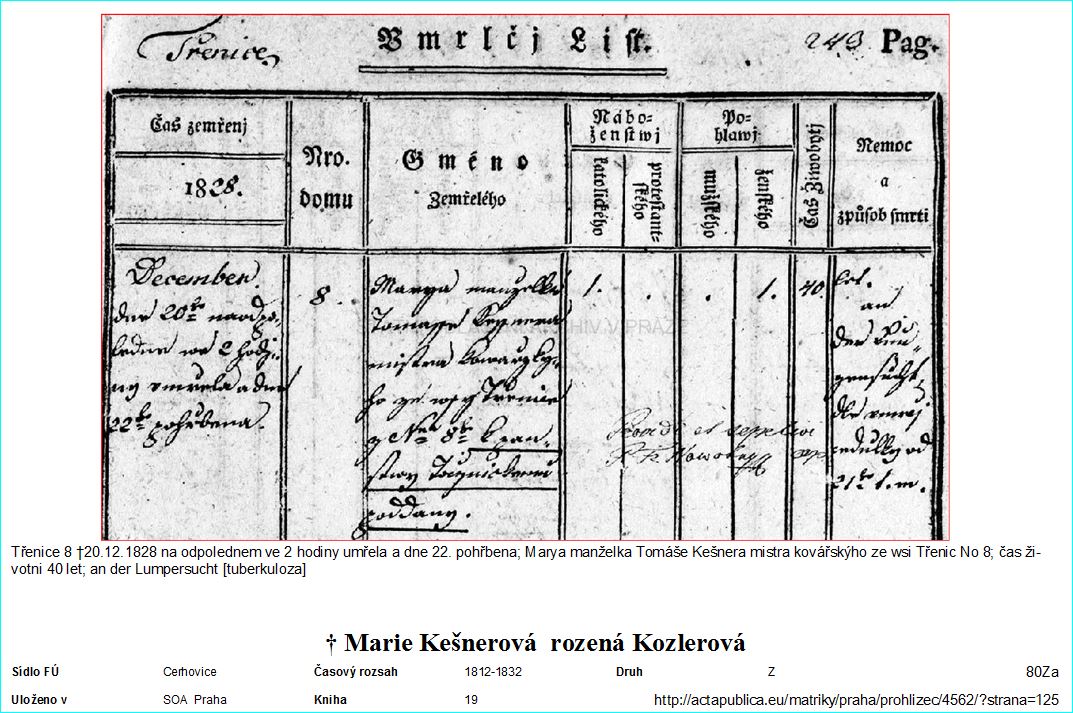 Třenice
Vmrlčj List.
243 Pag.
Čas zemřenj
1828.
Nro.
domu
Gméno
Zemřelého
Nábo-
ženstwj
katolického
protestant-
ského
Po-
hlawj
mužského
ženského
Čas Žiwobytj
Nemoc
a
způsob smrti
December.
dne 20ho naodpo-
ledne we 2 hodj-
ny umřela a dne
22ho pohřbena.
8.
Marya manzelka
Tomasse Kessnera
mistra kowarzky-
ho ze wsy Třenic
z Nro 8ho k pan-
stwy
poddany.
1. . . 1. 40.
let.
an
der
gensucht,
dle
cedulky od
21ho t. m.
Provdi et sepelivi
ARCHIV V PRAZE
Třenice 8 †20.12.1828 na odpolednem ve 2 hodiny umřela a dne 22. pohřbena; Marya manželka Tomáše Kešnera mistra kovářskýho ze wsi Třenic No 8; čas ži-
votni 40 let; an der Lumpersucht [tuberkuloza]
† Marie Kešnerová rozená Kozlerová
Sídlo FÚ Cerhovice Časový rozsah 1812-1832 Druh Z 80Za
Uloženo v SOA Praha Kniha 19 http://actapublica.eu/matriky/praha/prohlizec/4562/?strana=125